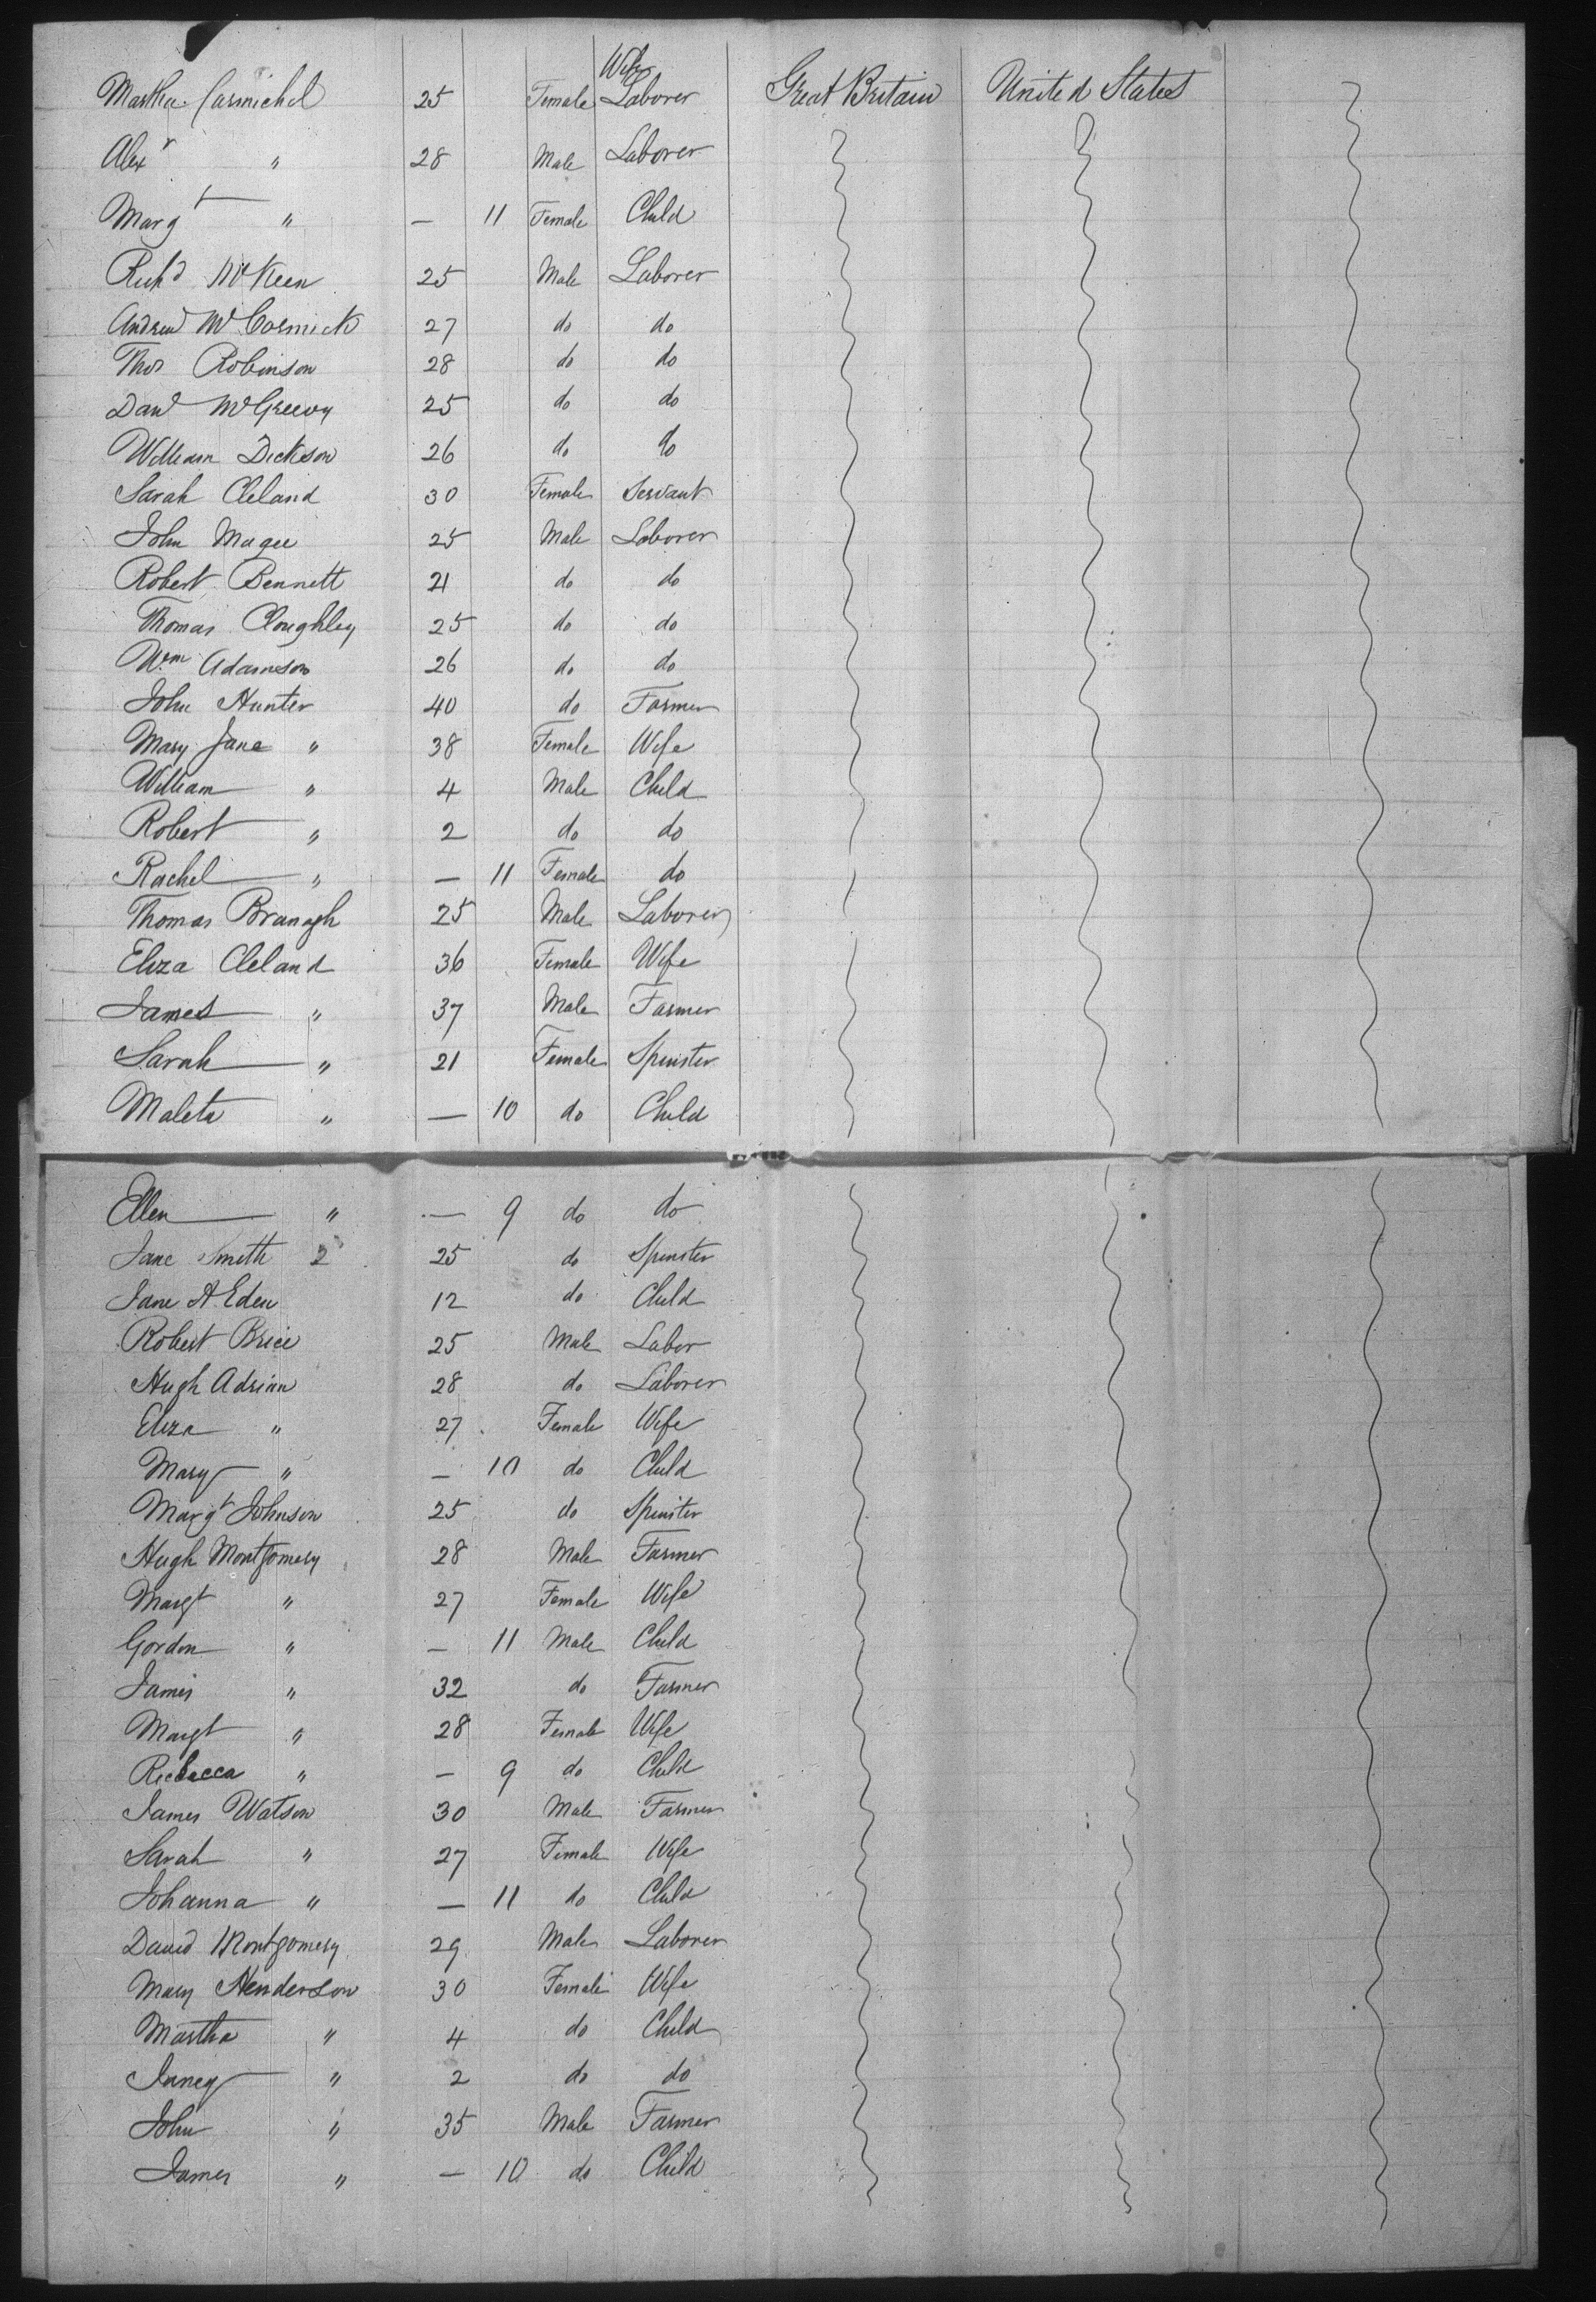 Martha Carmichel 25 Female Wife Laborer Great Britain United States
Alexr " 28 Male Laborer
Margt " — 11 Female Child
Richd McKeen 25 Male Laborer
Andrew McCormick 27 do do
Thos Robinson 28 do do
Davd McGreevy 25 do do
William Dickson 26 do do
Sarah Cleland 30 Female Servant
John Magee 25 Male Laborer
Robert Bennett 21 do do
Thomas Cloughley 25 do do
Wm Adamson 26 do do
John Hunter 40 do Farmer
Mary Jane " 38 Female Wife
William " 4 Male Child
Robert " 2 do do
Rachel " — 11 Female do
Thomas Branagh 25 Male Laborer
Eliza Cleland 36 Female Wife
James " 37 Male Farmer
Sarah " 21 Female Spinster
Maleta " — 10 do Child
Ellen " — 9 do do
Jane Smith 2 25 do Spinster
Jane A Eden 12 do Child
Robert Brice 25 Male Labor
Hugh Adrian 28 do Laborer
Eliza " 27 Female Wife
Mary " — 10 do Child
Margt Johnson 25 do Spinster
Hugh Montgomery 28 Male Farmer
Margt " 27 Female Wife
Gordon " — 11 Male Child
James " 32 do Farmer
Margt " 28 Female Wife
Rebecca " — 9 do Child
James Watson 30 Male Farmer
Sarah " 27 Female Wife
Johanna " — 11 do Child
David Montgomery 29 Male Laborer
Mary Henderson 30 Female Wife
Martha " 4 do Child
Janey " 2 do do
John " 35 Male Farmer
James " — 10 do Child